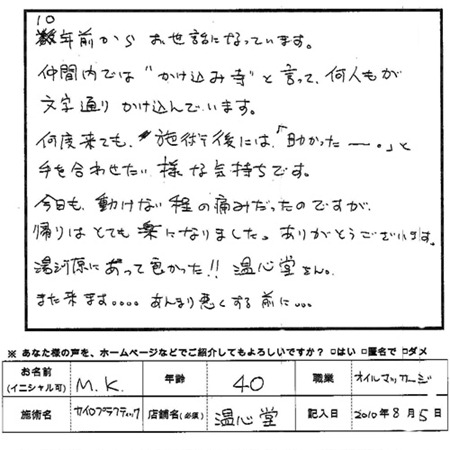 10
数年前から お世話になっています。
仲間内では"かけ込み寺"と言って、何人もが
文字通り かけ込んでいます。
何度来ても、施術後には、「助かったー。」と
手を合わせたい 様な気持ちです。
今日も、動けない程の痛みだったのですが、
帰りはとても楽になりました。ありがとうございます。
湯河原にあって良かった!! 温心堂さん。
また来ます.... あんまり悪くする前に...
※ あなた様の声を、ホームページなどでご紹介してもよろしいですか? □はい □匿名で □ダメ
お名前 (イニシャル可) M.K. 年齢 40 職業 オイルマッサージ
施術名 カイロプラクティック 店舗名(必須) 温心堂 記入日 2010年8月5日